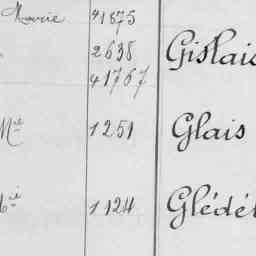 Marie 41875
2638 Gislais
41767
Mel 1251 Glais
1124 Glédel